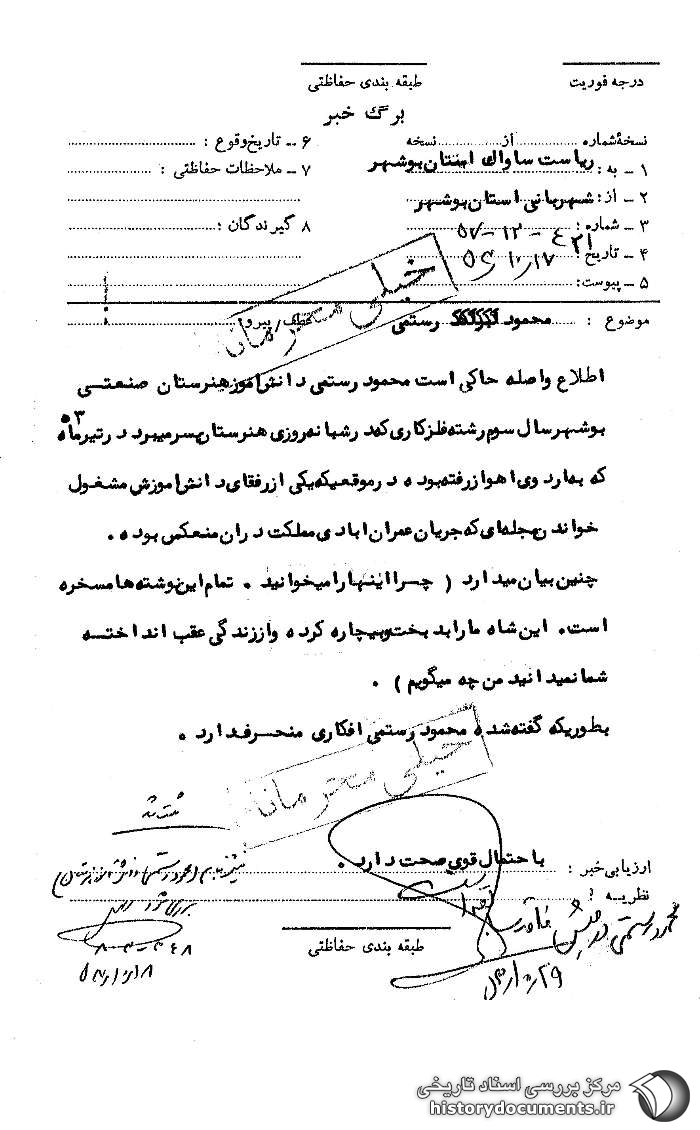 درجه فوریت
طبقه بندی حفاظتی
برگ خبر
نسخه شماره ............ از ............ نسخه
۱ ــ به : ریاست ساواک استان بوشهر
۲ ــ از : شهربانی استان بوشهر
۳ ــ شماره : ۴۲۱ - ۱۲ - ۵۷
۴ ــ تاریخ :
۵ ــ پیوست :
۶ ــ تاریخ وقوع :
۷ ــ ملاحظات حفاظتی :
۸ گیرندگان :
خیلی محرمانه
موضوع : محمود رستمی
عطف/پیرو
اطلاع واصله حاکی است محمود رستمی دانش اموز هنرستان صنعتی
بوشهر سال سوم رشته فلزکاری که در شبانه روزی هنرستان بسر میبرد در تیر ماه ۵۳
که به اردوی اهواز رفته بوده در موقعیکه یکی از رفقای دانش اموزش مشغول
خواندن مجله‌ای که جریان عمران ابادی مملکت در ان منعکس بوده .
چنین بیان میدارد ( چرا اینها را میخوانید . تمام این نوشته ها مسخره
است. این شاه ما را بد بخت و بیچاره کرده و از زندگی عقب انداختسه
شما نمیدانید من چه میگویم ) .
بطوریکه گفته شده محمود رستمی افکاری منحرف دارد .
خیلی محرمانه
ارزیابی خبر : با احتمال قوی صحت دارد .
نظریه :
طبقه بندی حفاظتی
محمود رستمی
مرکز بررسی اسناد تاریخی
historydocuments.ir